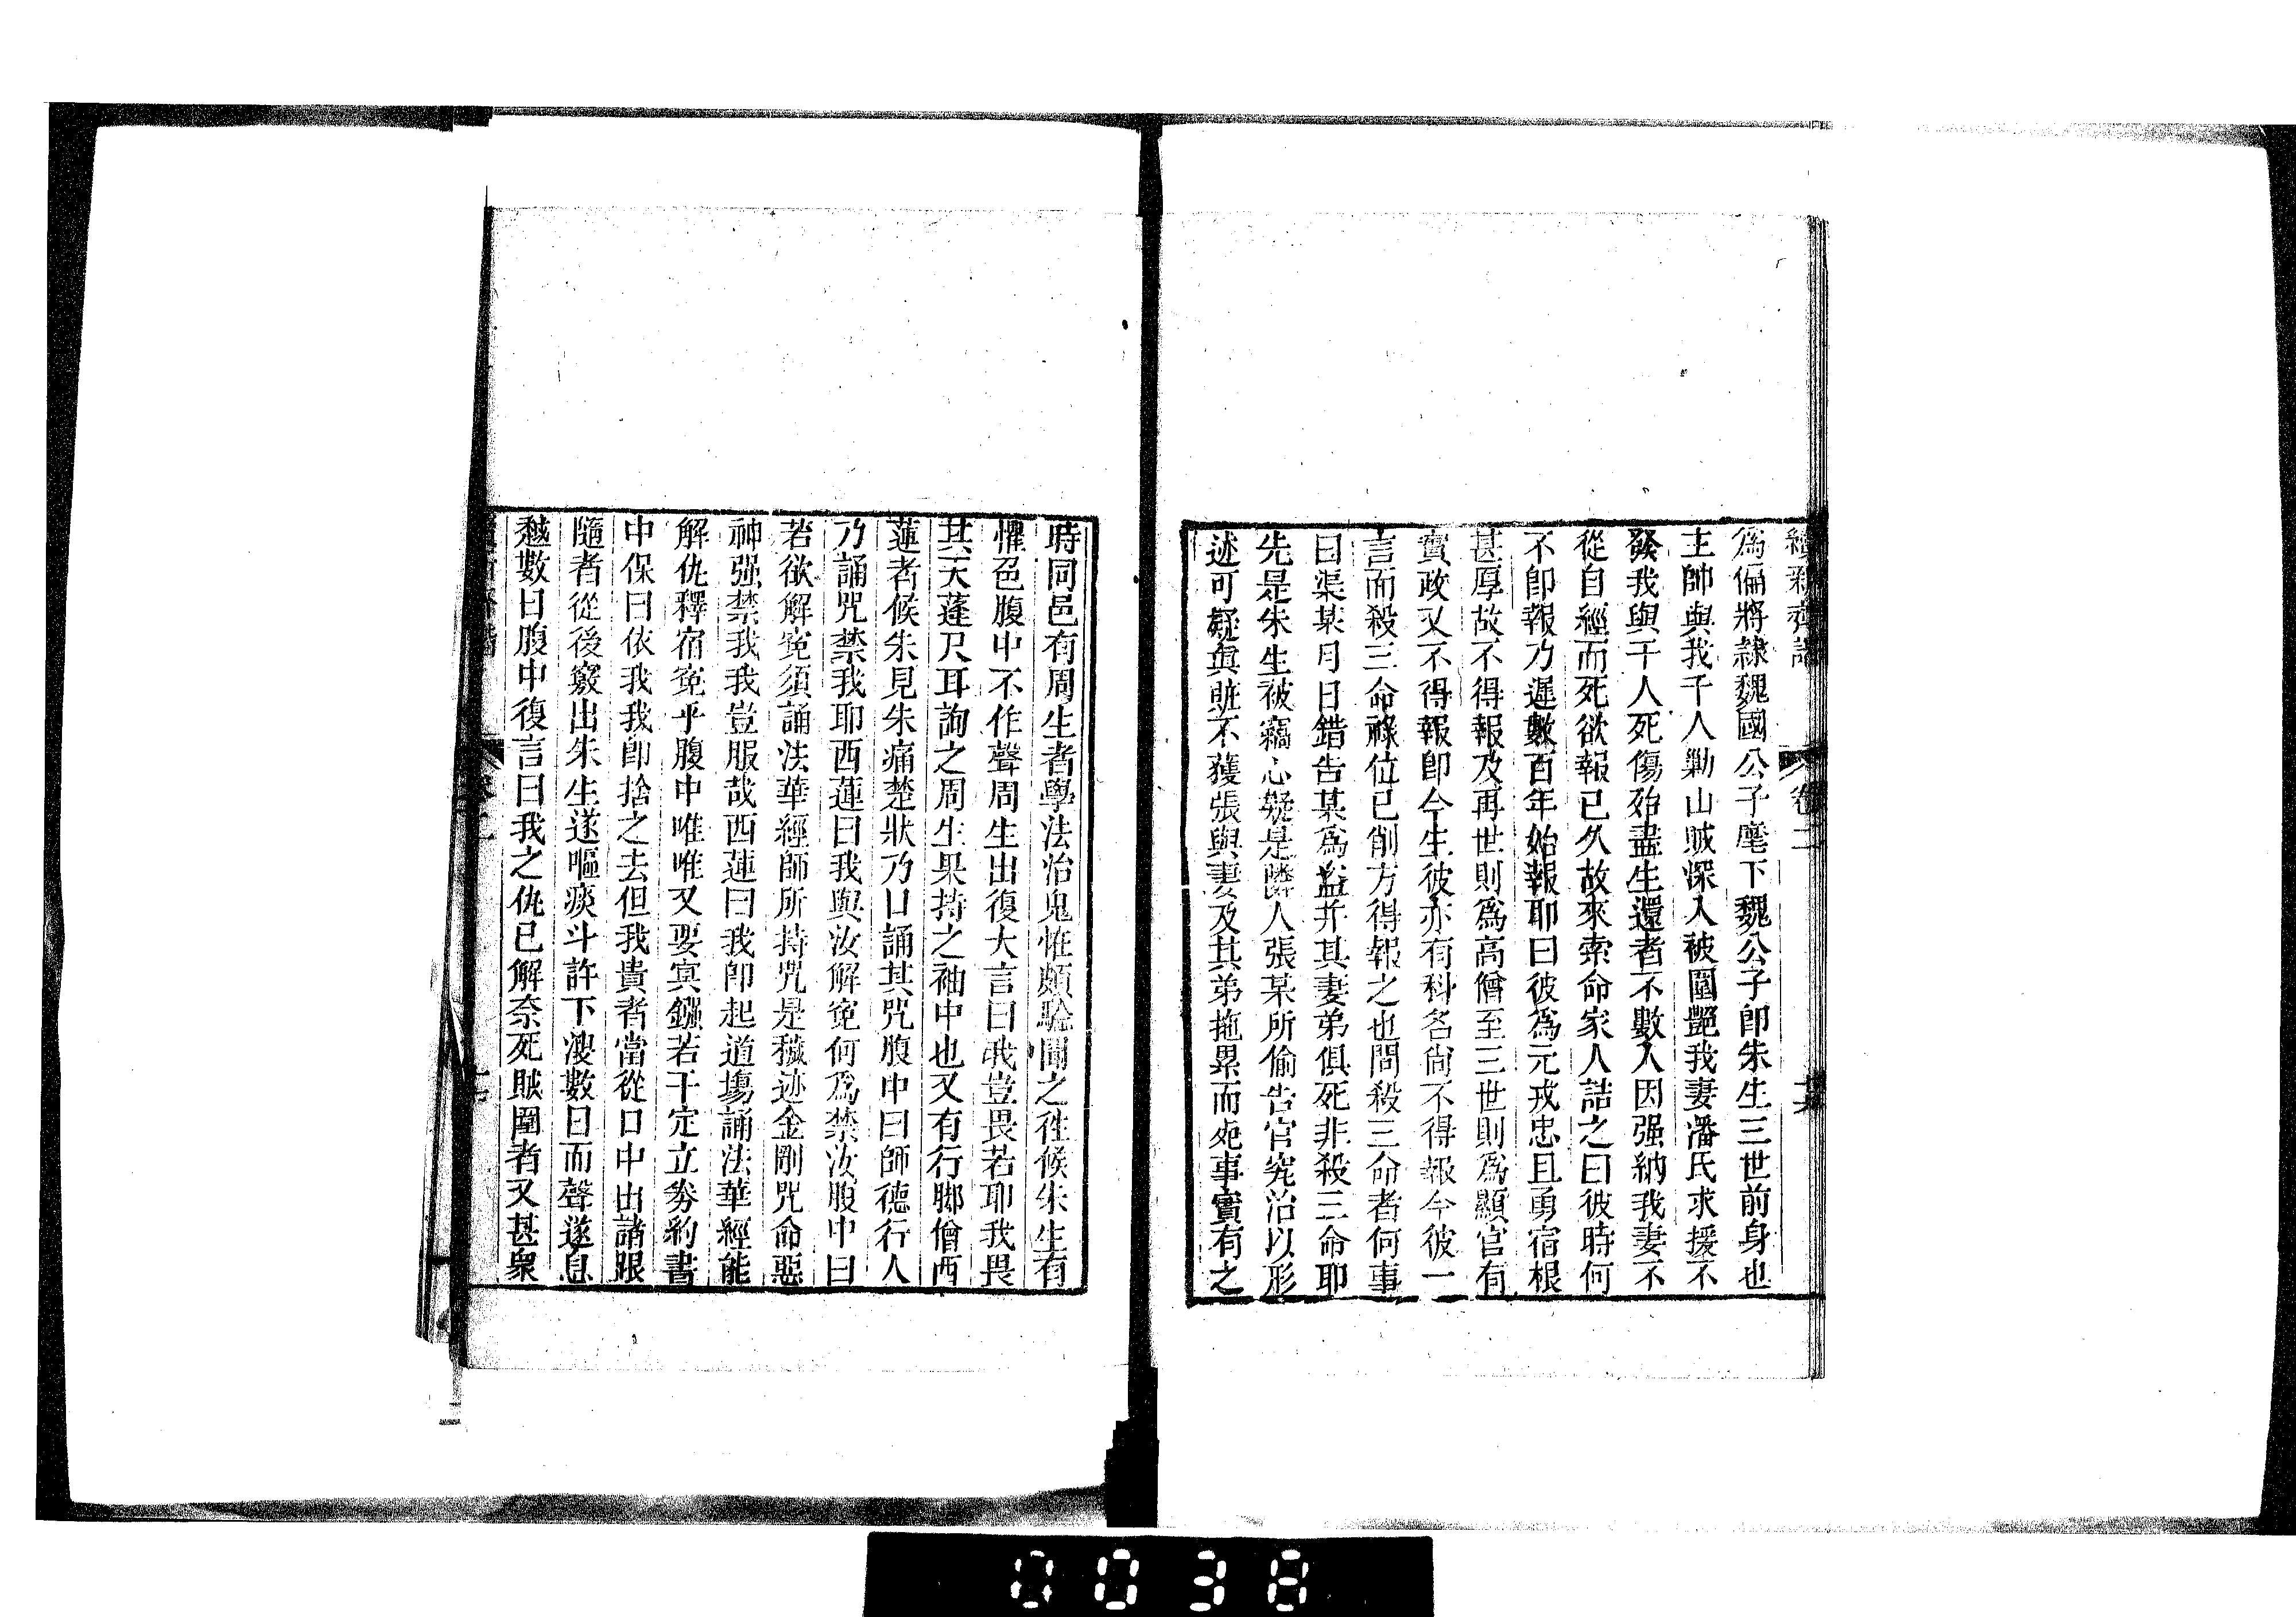 續新齊諧 卷二 十六
為偏將隷魏國公子麾下魏公子卽朱生三世前身也
主帥與我千人勦山賊深入被圍艷我妻潘氏求援不
發我與千人死傷殆盡生還者不數人因强納我妻不
從自經而死欲報已久故來索命家人詰之曰彼時何
不卽報乃遲數百年始報耶曰彼為元戎忠且勇宿根
甚厚故不得報及再世則為高僧至三世則為顯官有
實政又不得報卽今生彼亦有科名尚不得報今彼一
言而殺三命祿位已削方得報之也問殺三命者何事
曰渠某月日錯告某為盜并其妻弟俱死非殺三命耶
先是朱生被竊心疑是隣人張某所偷告官究治以形
迹可疑眞賍不獲張與妻及其弟拖累而死事實有之
時同邑有周生者學法治鬼恠頗驗聞之徃候朱生有
懼色腹中不作聲周生出復大言曰我豈畏若耶我畏
其天蓬尺耳詢之周生果持之袖中也又有行脚僧西
蓮者候朱見朱痛楚狀乃口誦其咒腹中曰師德行人
乃誦咒禁我耶西蓮曰我與汝解寃何為禁汝腹中曰
若欲解寃須誦法華經師所持咒是穢迹金剛咒命惡
神强禁我我豈服哉西蓮曰我卽起道塲誦法華經能
解仇釋宿寃乎腹中唯唯又要寘鏹若干定立劵約書
中保曰依我我卽捨之去但我貴者當從口中出諸跟
隨者從後竅出朱生遂嘔痰斗許下溲數日而聲遂息
越數日腹中復言曰我之仇已解奈死賊圍者又甚衆